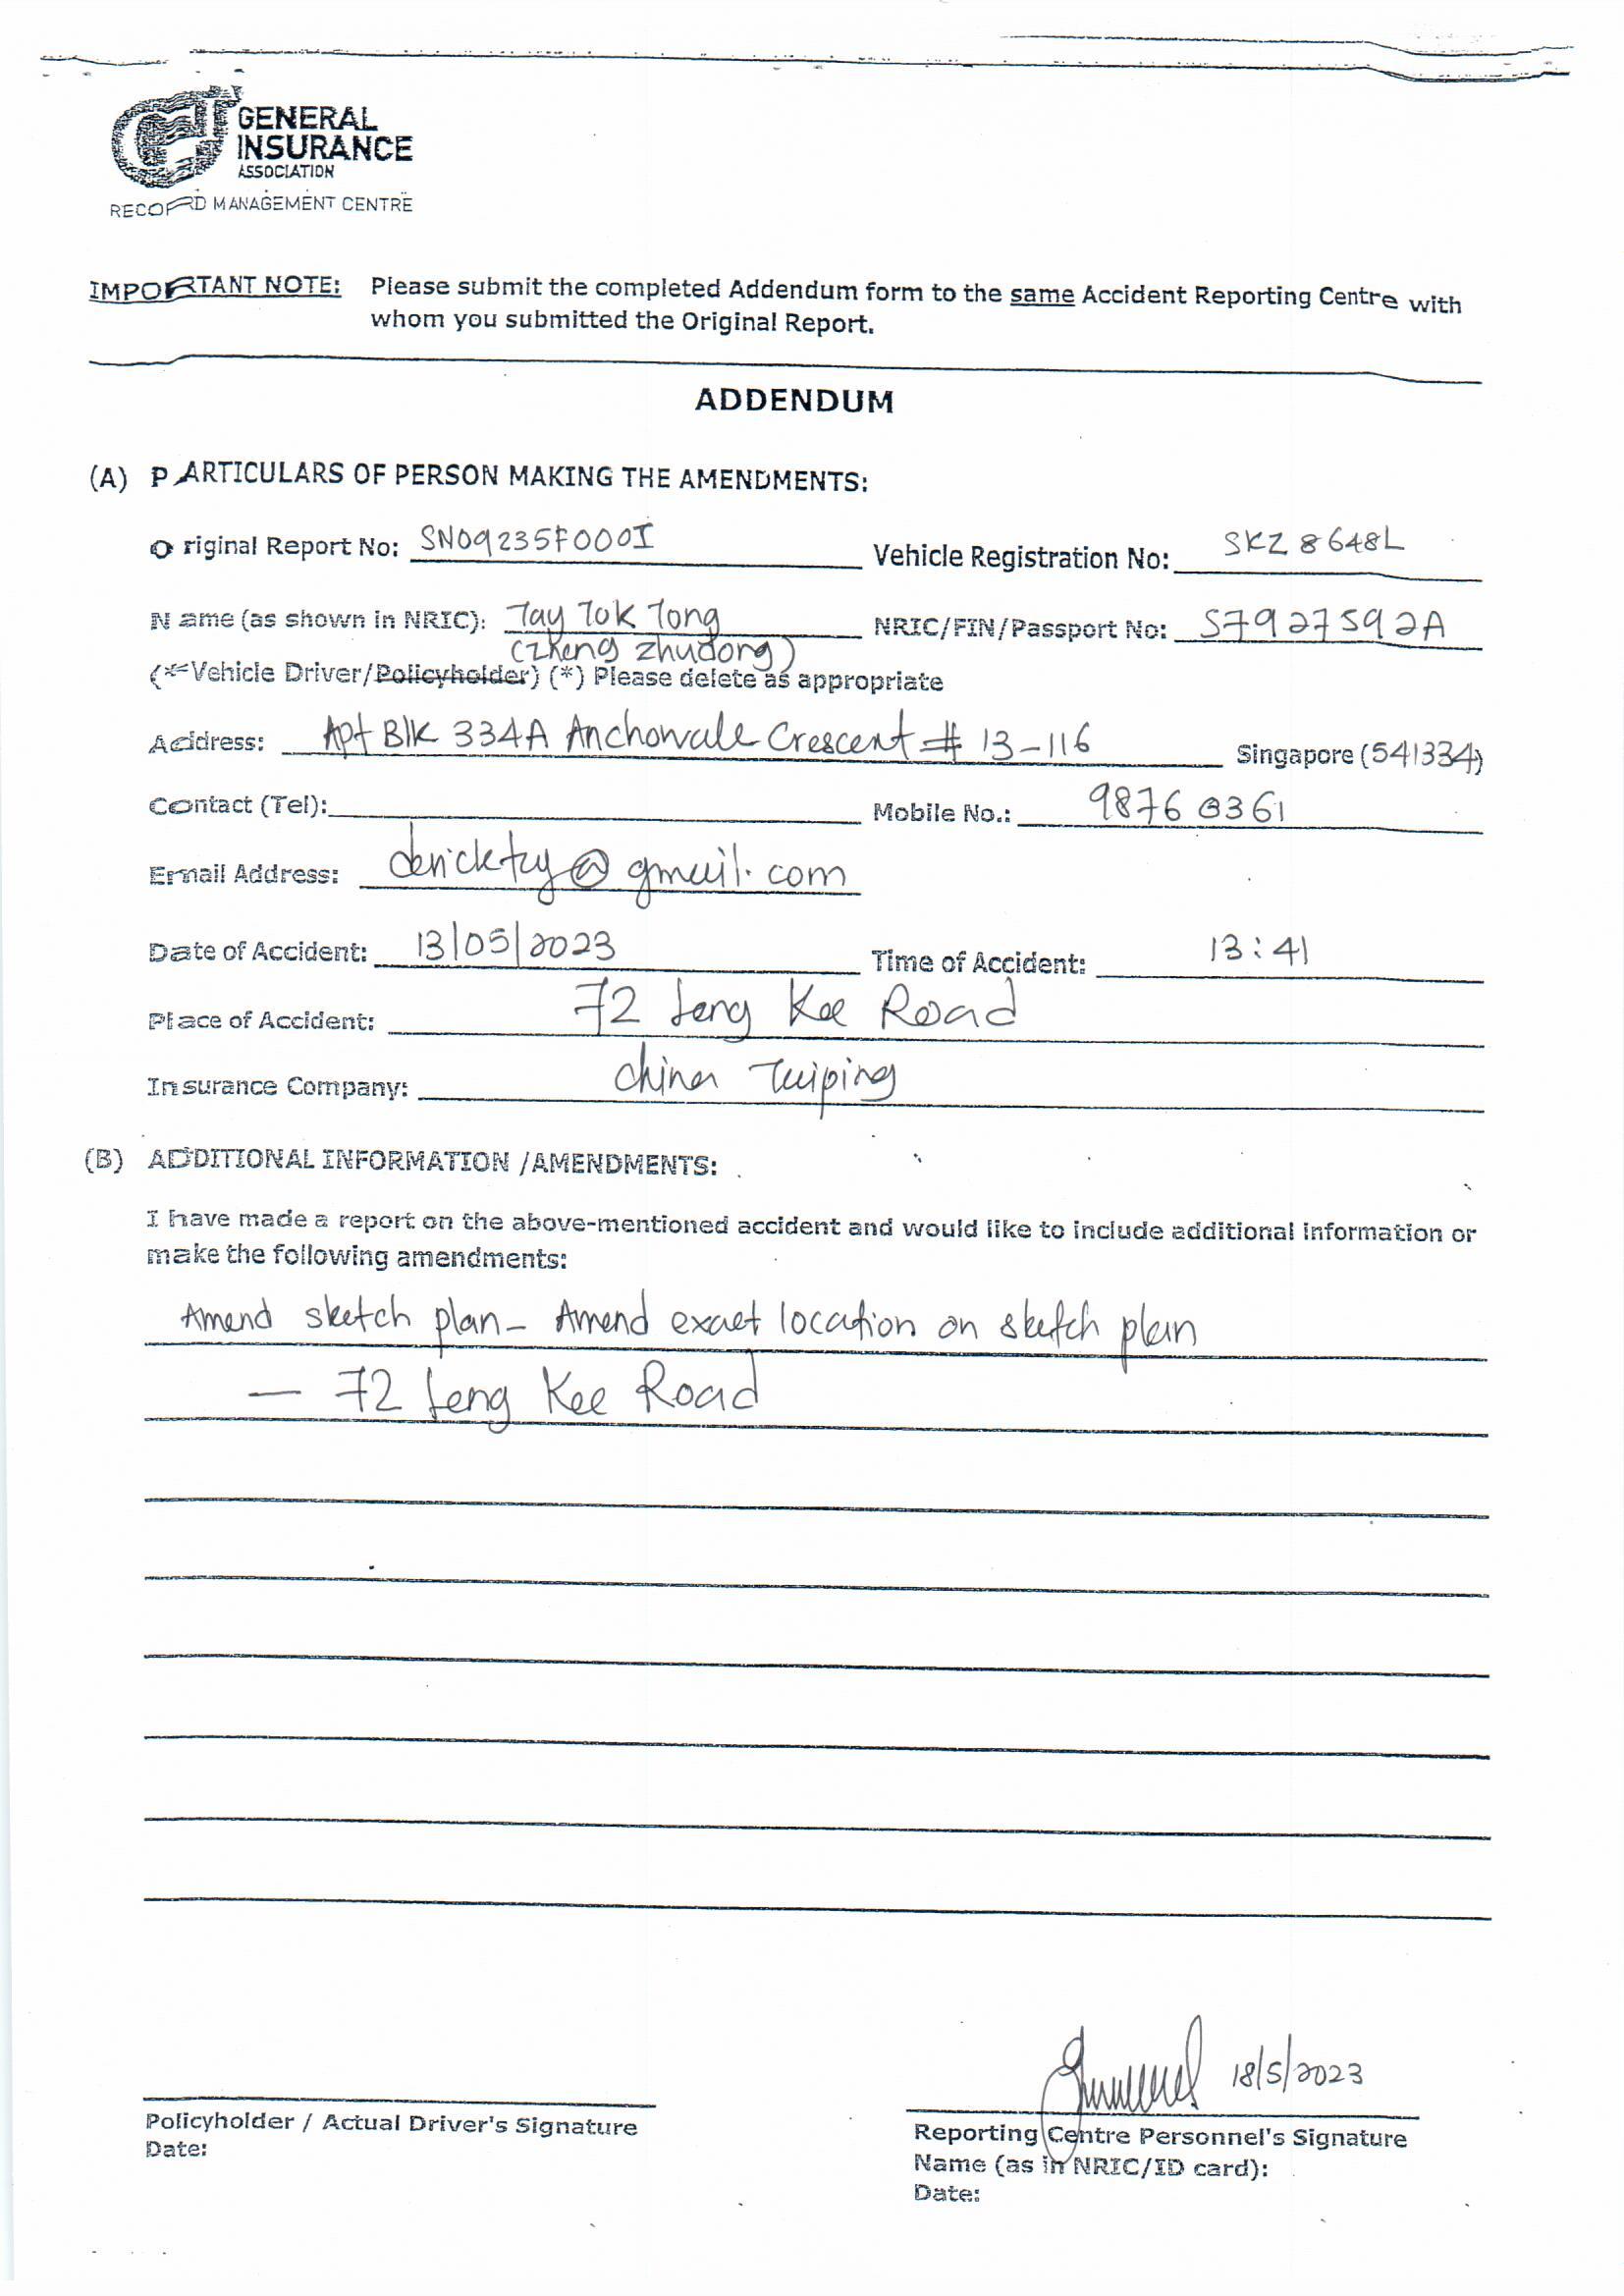 GENERAL
INSURANCE
ASSOCIATION
RECORD MANAGEMENT CENTRE
IMPORTANT NOTE: Please submit the completed Addendum form to the same Accident Reporting Centre with
whom you submitted the Original Report.
ADDENDUM
(A) PARTICULARS OF PERSON MAKING THE AMENDMENTS:
Original Report No: SN09235F000I Vehicle Registration No: SKZ8648L
Name (as shown in NRIC): Tay Tok Tong NRIC/FIN/Passport No: S7927592A
(Zheng Zhudong)
(*Vehicle Driver/Policyholder) (*) Please delete as appropriate
Address: Apt Blk 334A Anchorvale Crescent # 13-116 Singapore (541334)
Contact (Tel): Mobile No.: 9876 3361
Email Address: dericktty@gmail.com
Date of Accident: 13/05/2023 Time of Accident: 13:41
Place of Accident: 72 Leng Kee Road
Insurance Company: China Taiping
(B) ADDITIONAL INFORMATION /AMENDMENTS:
I have made a report on the above-mentioned accident and would like to include additional information or
make the following amendments:
Amend sketch plan - Amend exact location on sketch plan
— 72 Leng Kee Road
18/5/2023
Policyholder / Actual Driver's Signature Reporting Centre Personnel's Signature
Date: Name (as in NRIC/ID card):
Date: